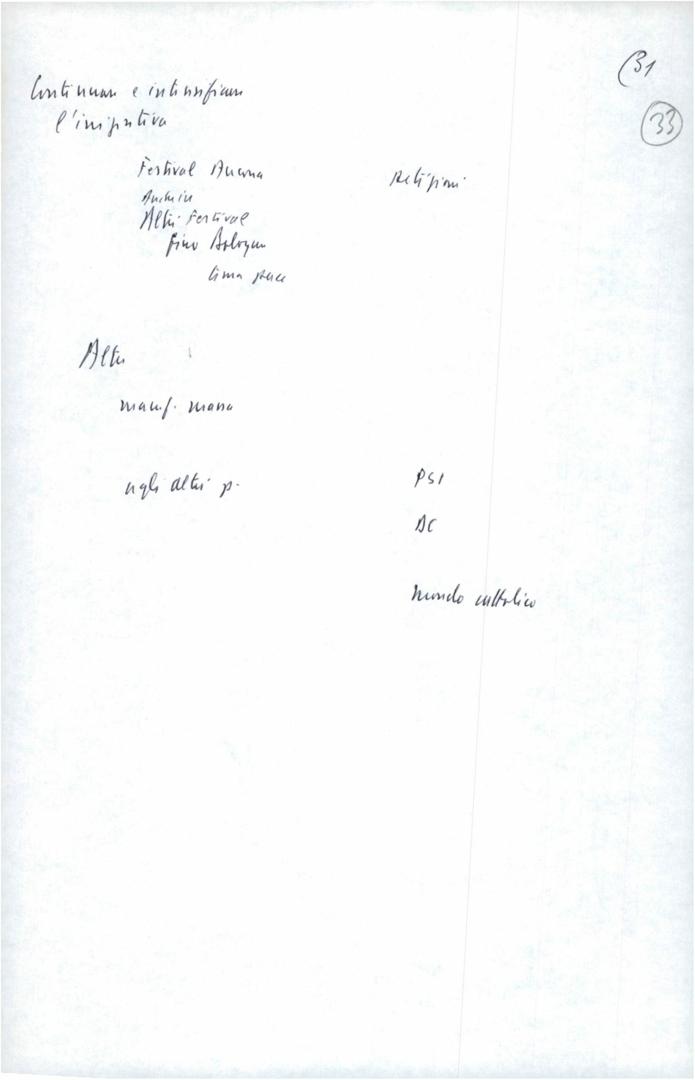 31
33
Continuare e intensificare
l'iniziativa
Festival Ancona
Anche in
Altri Festival
fino Bologna
tema pace
Altre
manif. massa
negli altri p.
PSI
DC
mondo cattolico